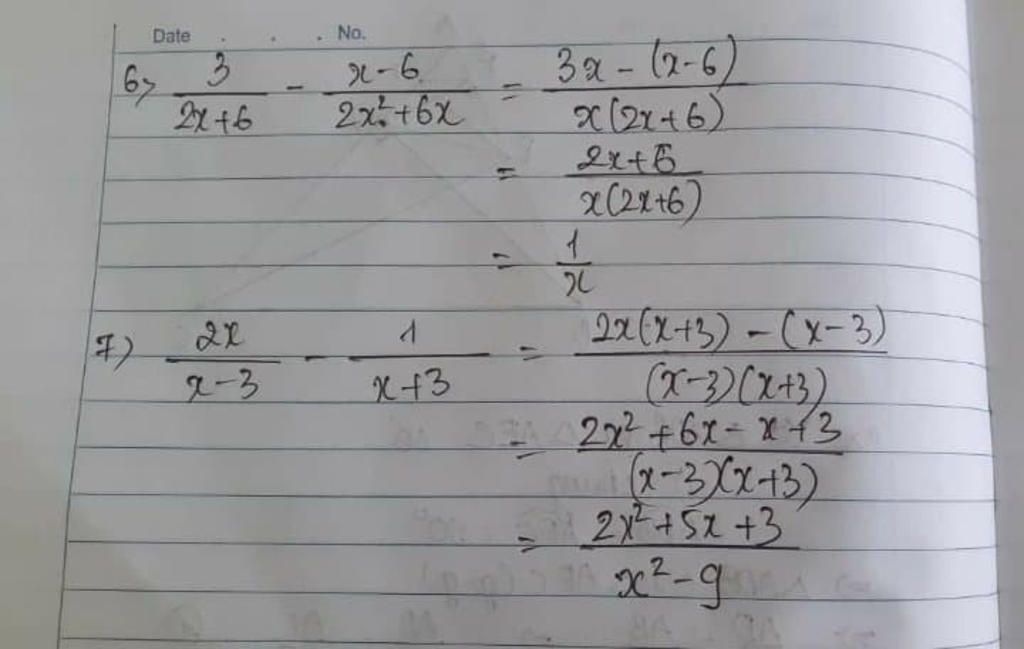 Date . . . No.
6> 3/(2x+6) - (x-6)/(2x²+6x) = (3x-(x-6))/(x(2x+6))
= (2x+6)/(x(2x+6))
= 1/x
7) 2x/(x-3) - 1/(x+3) = (2x(x+3)-(x-3))/((x-3)(x+3))
= (2x²+6x-x+3)/((x-3)(x+3))
= (2x²+5x+3)/(x²-9)